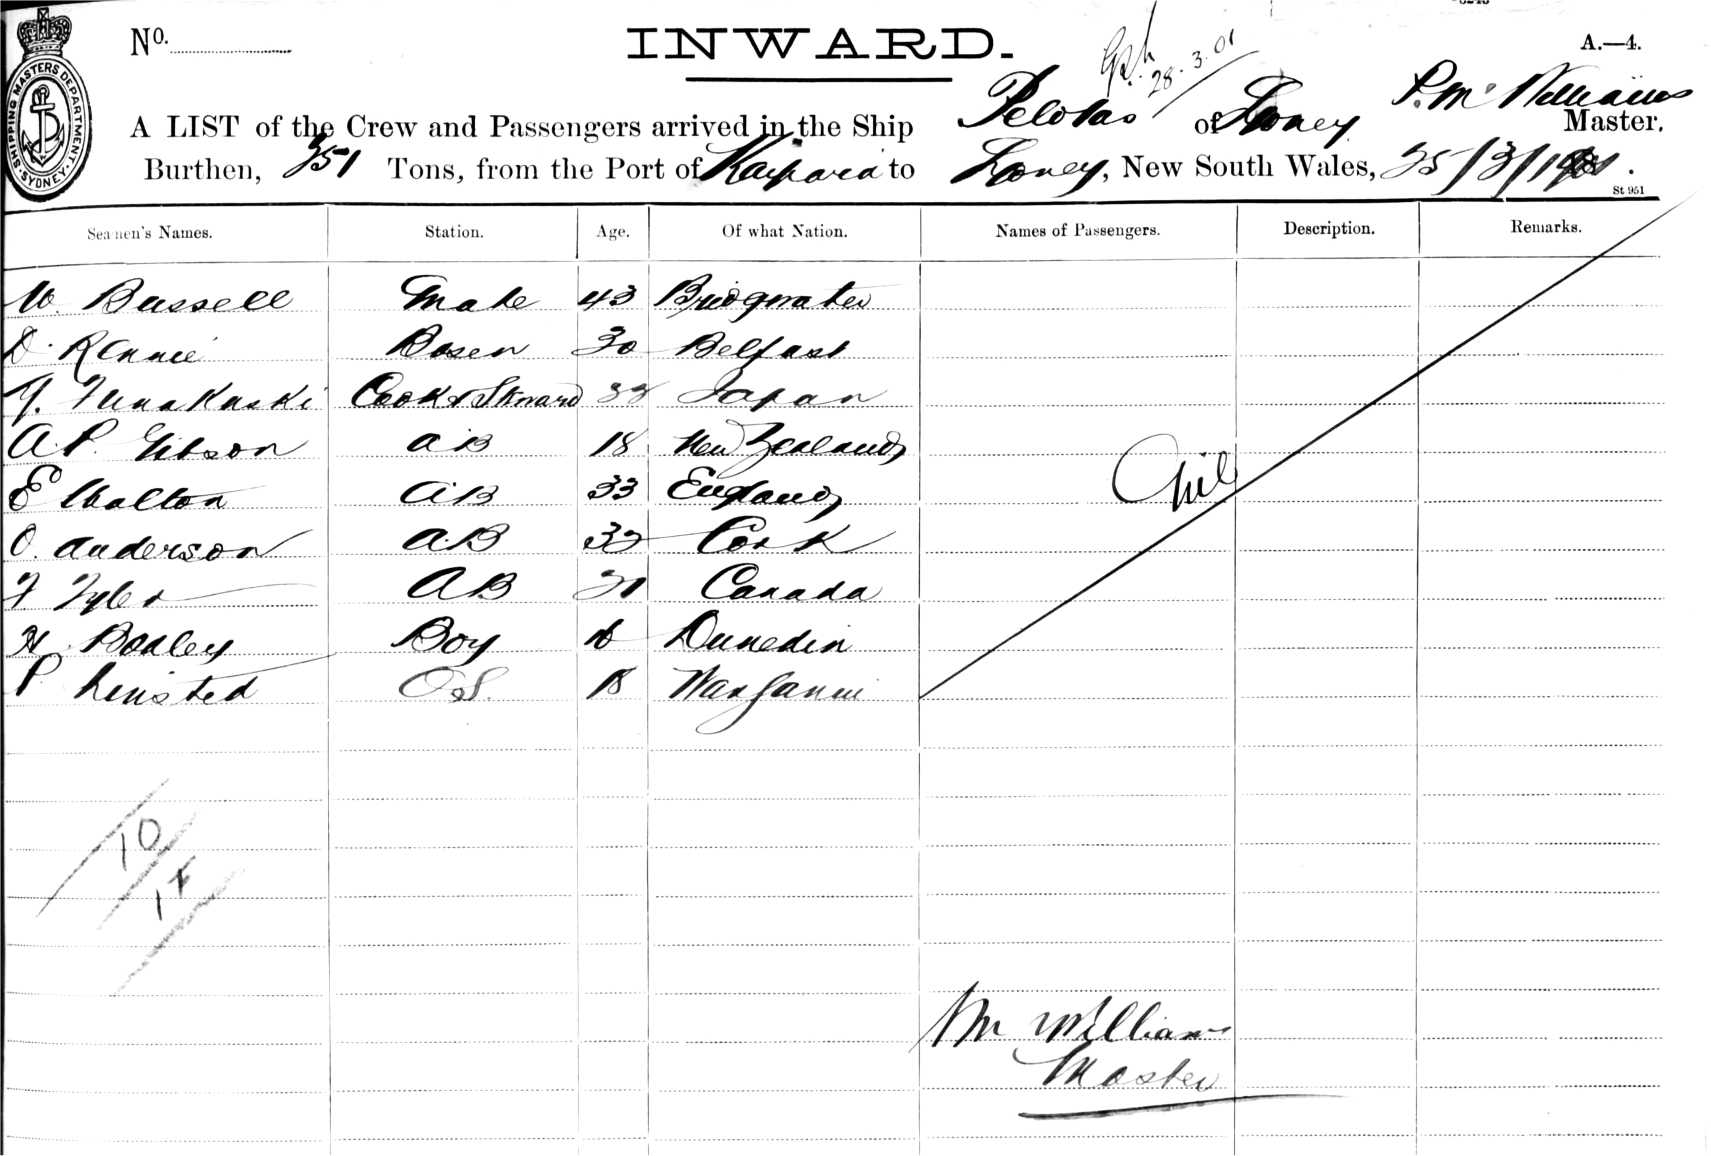 INWARD.
No.
A.—4.
SHIPPING MASTERS DEPARTMENT. SYDNEY.
28.3.01
A LIST of the Crew and Passengers arrived in the Ship Pelotas of Sydney P. McWilliams Master.
Burthen, 351 Tons, from the Port of Kaipara to Sydney, New South Wales, 25/3/1901.
St 951
Seamen's Names. Station. Age. Of what Nation. Names of Passengers. Description. Remarks.
W. Bussell Mate 43 Bridgwater
D. Rennie Bosen 30 Belfast
Cook & Steward Japan
A.P. Gibson AB 18 New Zealand
E Walton AB 33 England
O. Anderson AB Cork
F Tyler AB Canada
H. Bodley Boy 16 Dunedin
P. Linsted OS. 18 Wanganui
Nil
10
McWilliams
Master